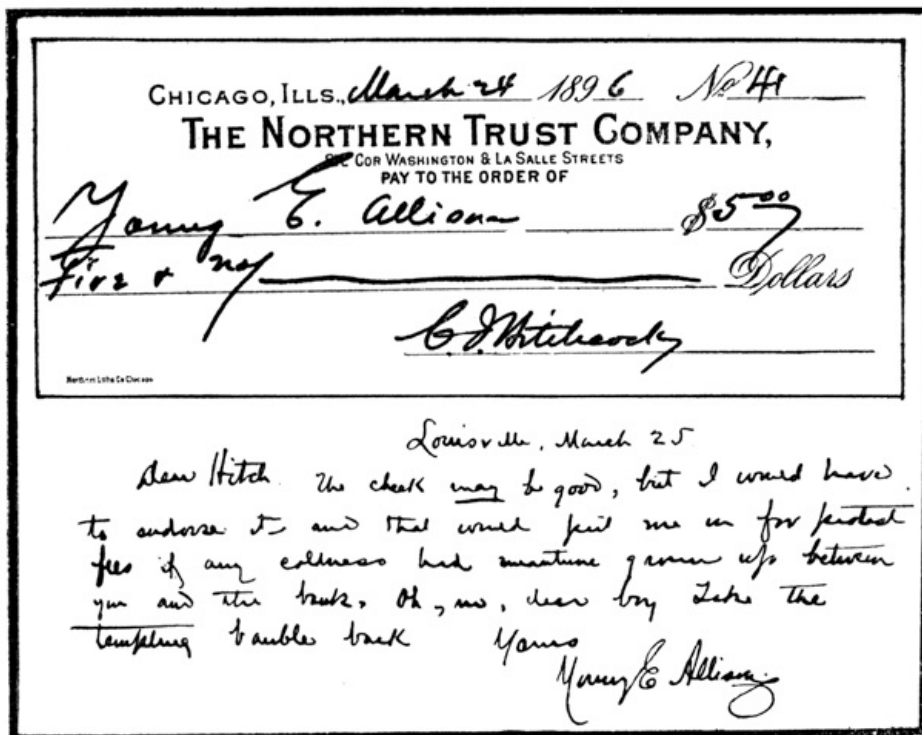 CHICAGO, ILLS., March 24 1896 No 41
THE NORTHERN TRUST COMPANY,
S.E. COR WASHINGTON & LA SALLE STREETS
PAY TO THE ORDER OF
Young E. Allison $5 00
Five & no/ Dollars
C. J. Hitchcock
Northern Litho Co Chicago
Louisville, March 25
Dear Hitch. The check may be good, but I would have
to endorse it and that would put me in for protest
fees if any coldness had meantime grown up between
you and the bank. Oh, no, dear boy Take the
tempting bauble back Yours
Young E Allison